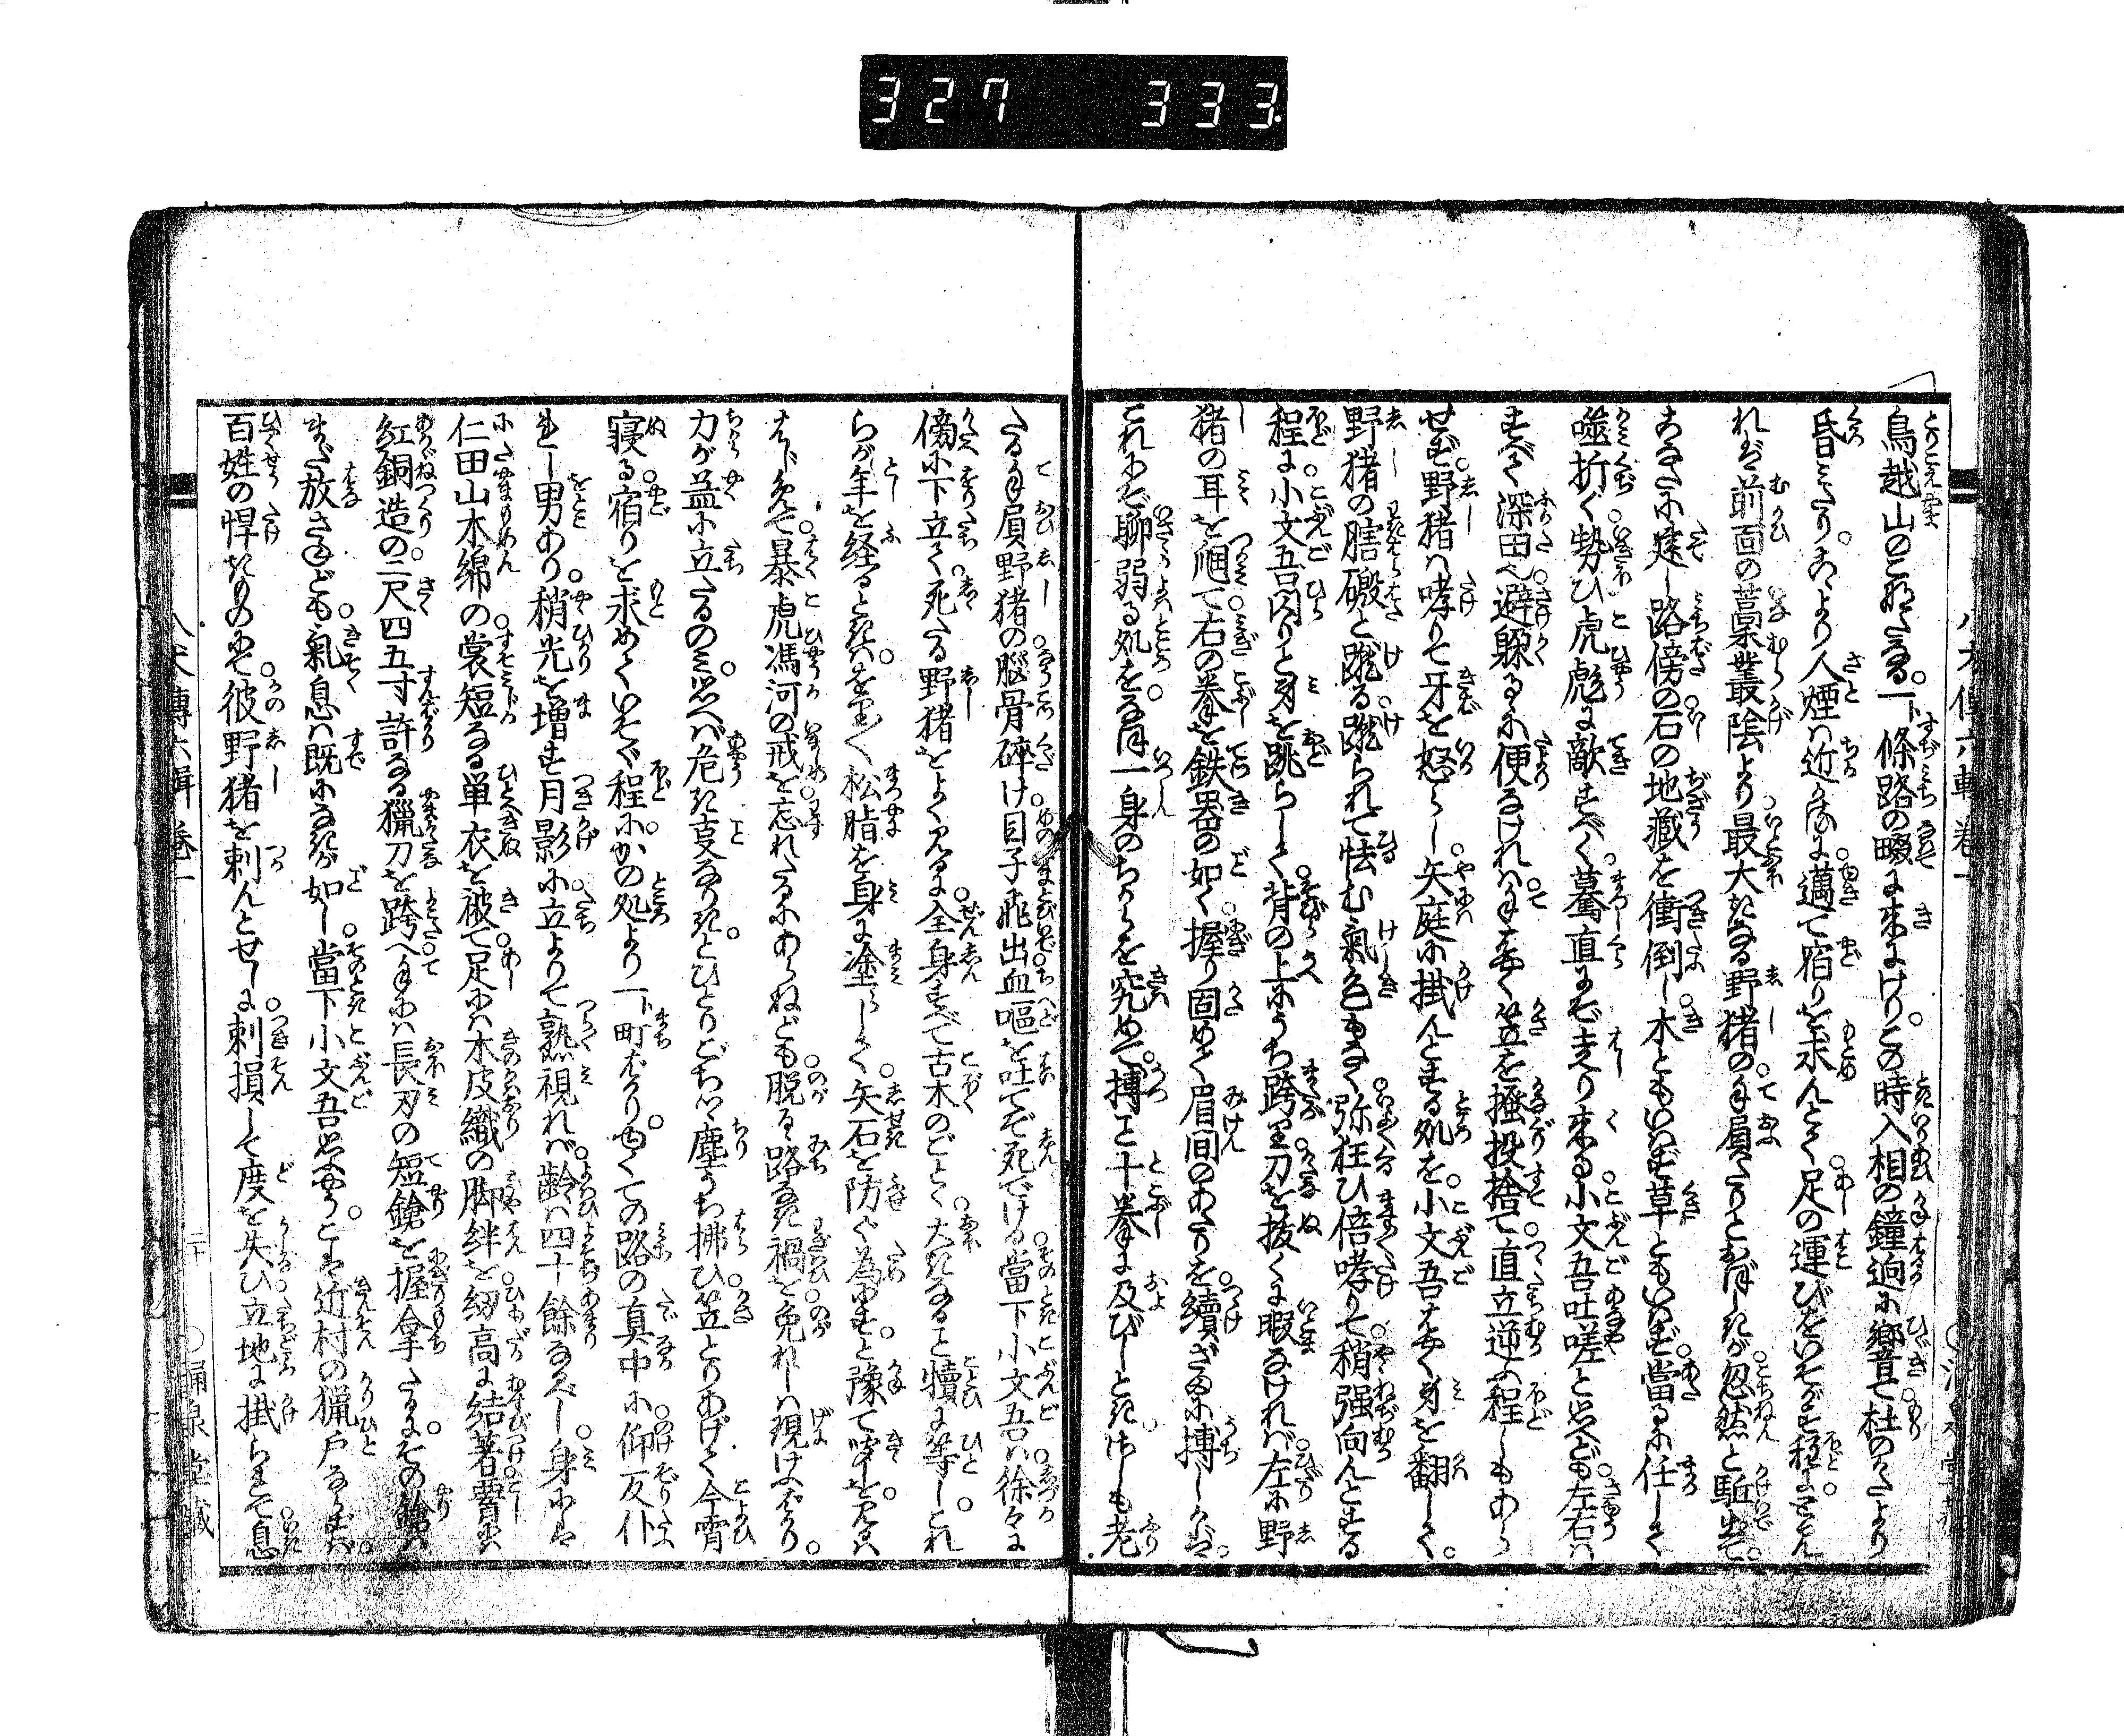 327 333
鳥越山のこなたなる。一條路の畷に來にけり。この時入相の鐘迥に響て杜のかたより
昏みたり。こゝより人煙は近かるに邁て宿りを求んとて足の運びをいそがす程に
れば前面の藁叢陰より最大きなる野猪の手屓たりとおぼしきが忽然と駈出て。
こなたに建し路傍の石の地藏を衝倒し。木ともいはず草ともいはず。當るに任して
噬折く勢ひ虎彪に敵すべく。驀直にぞ走り來る。小文吾吐嗟と思へども。左右は
すべて深田也。避躱るに便なければ手ばやく笠を掻投捨て。直立逆ふ程しもあら
せず。野猪は哮りて牙を怒らし。矢庭に掛んとする処を。小文吾はやく身を翻して。
野猪の膁磤と蹴る。蹴られて怯む氣色もなく。弥狂ひ倍哮りて。稍强向んとする
程に。小文吾閃りと身を跳らして。背の上にうち跨り。刀を拔くに暇なければ。左に野
猪の耳を爴て。右の拳を鉄器の如く。握り固めて眉間のあたりを續ざまに搏しかば。
これにぞ聊弱る処を。なほ一身のちからを究めて。搏こと十拳に及びしとき。さしも老
たる手屓野猪の腦骨碎け。目子飛出血嘔を吐てぞ死でける。當下小文吾は。徐々に
傍に下立て。死たる野猪をよく見るに。全身すべて古木のごとく。大きなること犢に等し。これ
らが年を経るときは。をり〳〵松脂を身に塗らして。矢石を防ぐ為にすと。豫て聞しを見るは
はじめて。暴虎馮河の戒を。忘れたるにあらねども。脱るゝ路なき禍を。免れしは現けふばかり。
力が益に立たるのみ。思へば危き支なりきと。ひとりごちつゝ塵うち拂ひ。笠とりあげて今宵
寝る。宿りを求めていそぐ程に。かの処より一町ばかり。ゆくての路の真中に。仰反仆
れし男あり。稍光を増す月影に。立よりて熟視れば。齢は四十餘なるべし。身には
仁田山木綿の。裳短なる単衣を被て。足には木皮織の脚絆を。紐高に結著。腰には
紅銅造の。二尺四五寸許なる獵刀を跨へ。手には長刃の短鎗を握拿たるに。その鎗は
まだ放さねども。氣息は既になきが如し。當下小文吾思ふやう。こは近村の猟戸ならずは。
百姓の悍きものにて。彼野猪を刺んとせしに。刺損して度を失ひ。立地に掛られて。息
八犬傳六輯 卷一
二十
○涌泉堂藏